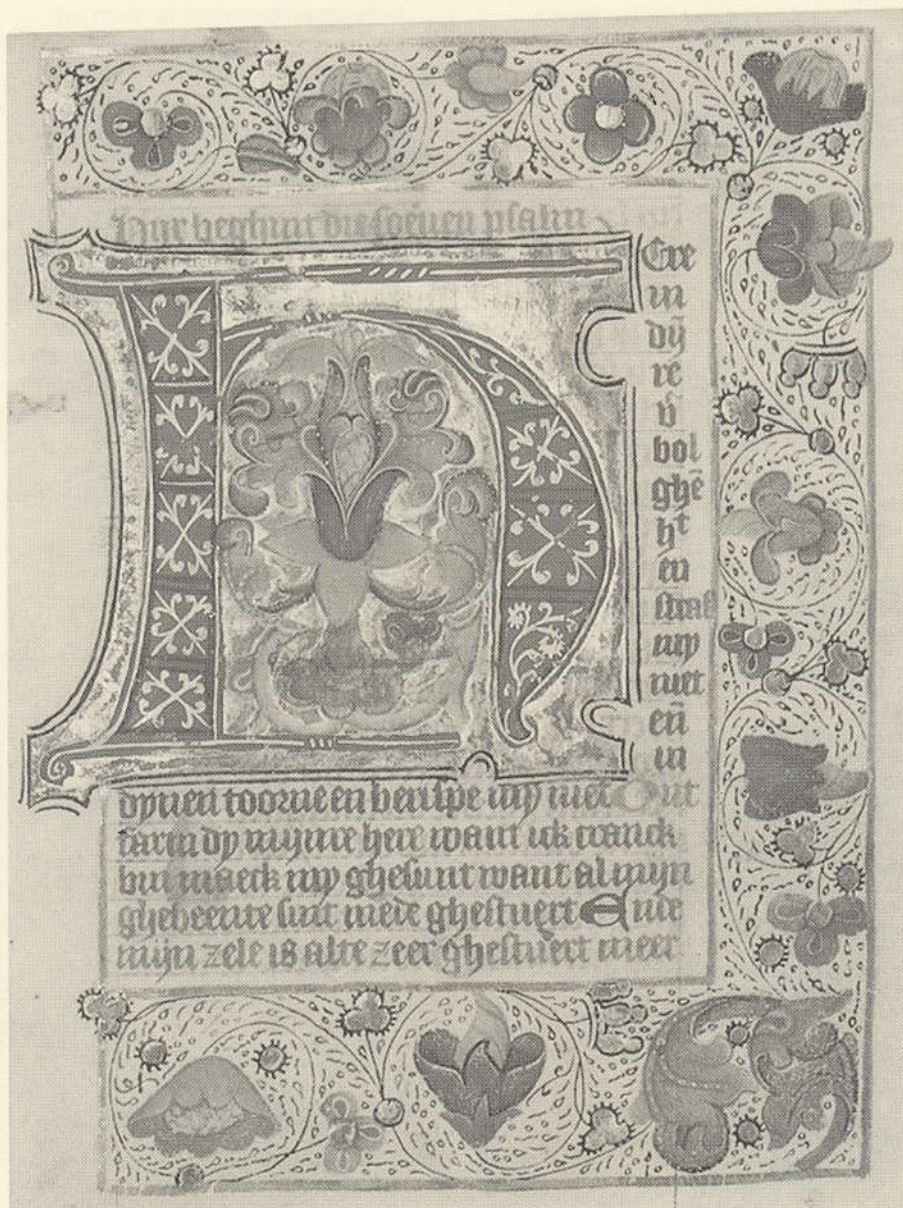 Hyr beghint die soeuen psalm
H Ere
in
dȳ
re
v̄
bol
ghē
hᵗ
en
straf
my
niet
eñ
in
dynen toorne en berispe my niet Ont
farm dy mynre here want ick cranck
bin maeck my ghesunt want al mijn
ghebeente sint mede ghestuert Ende
mijn zele is alte zeer ghestuert meer